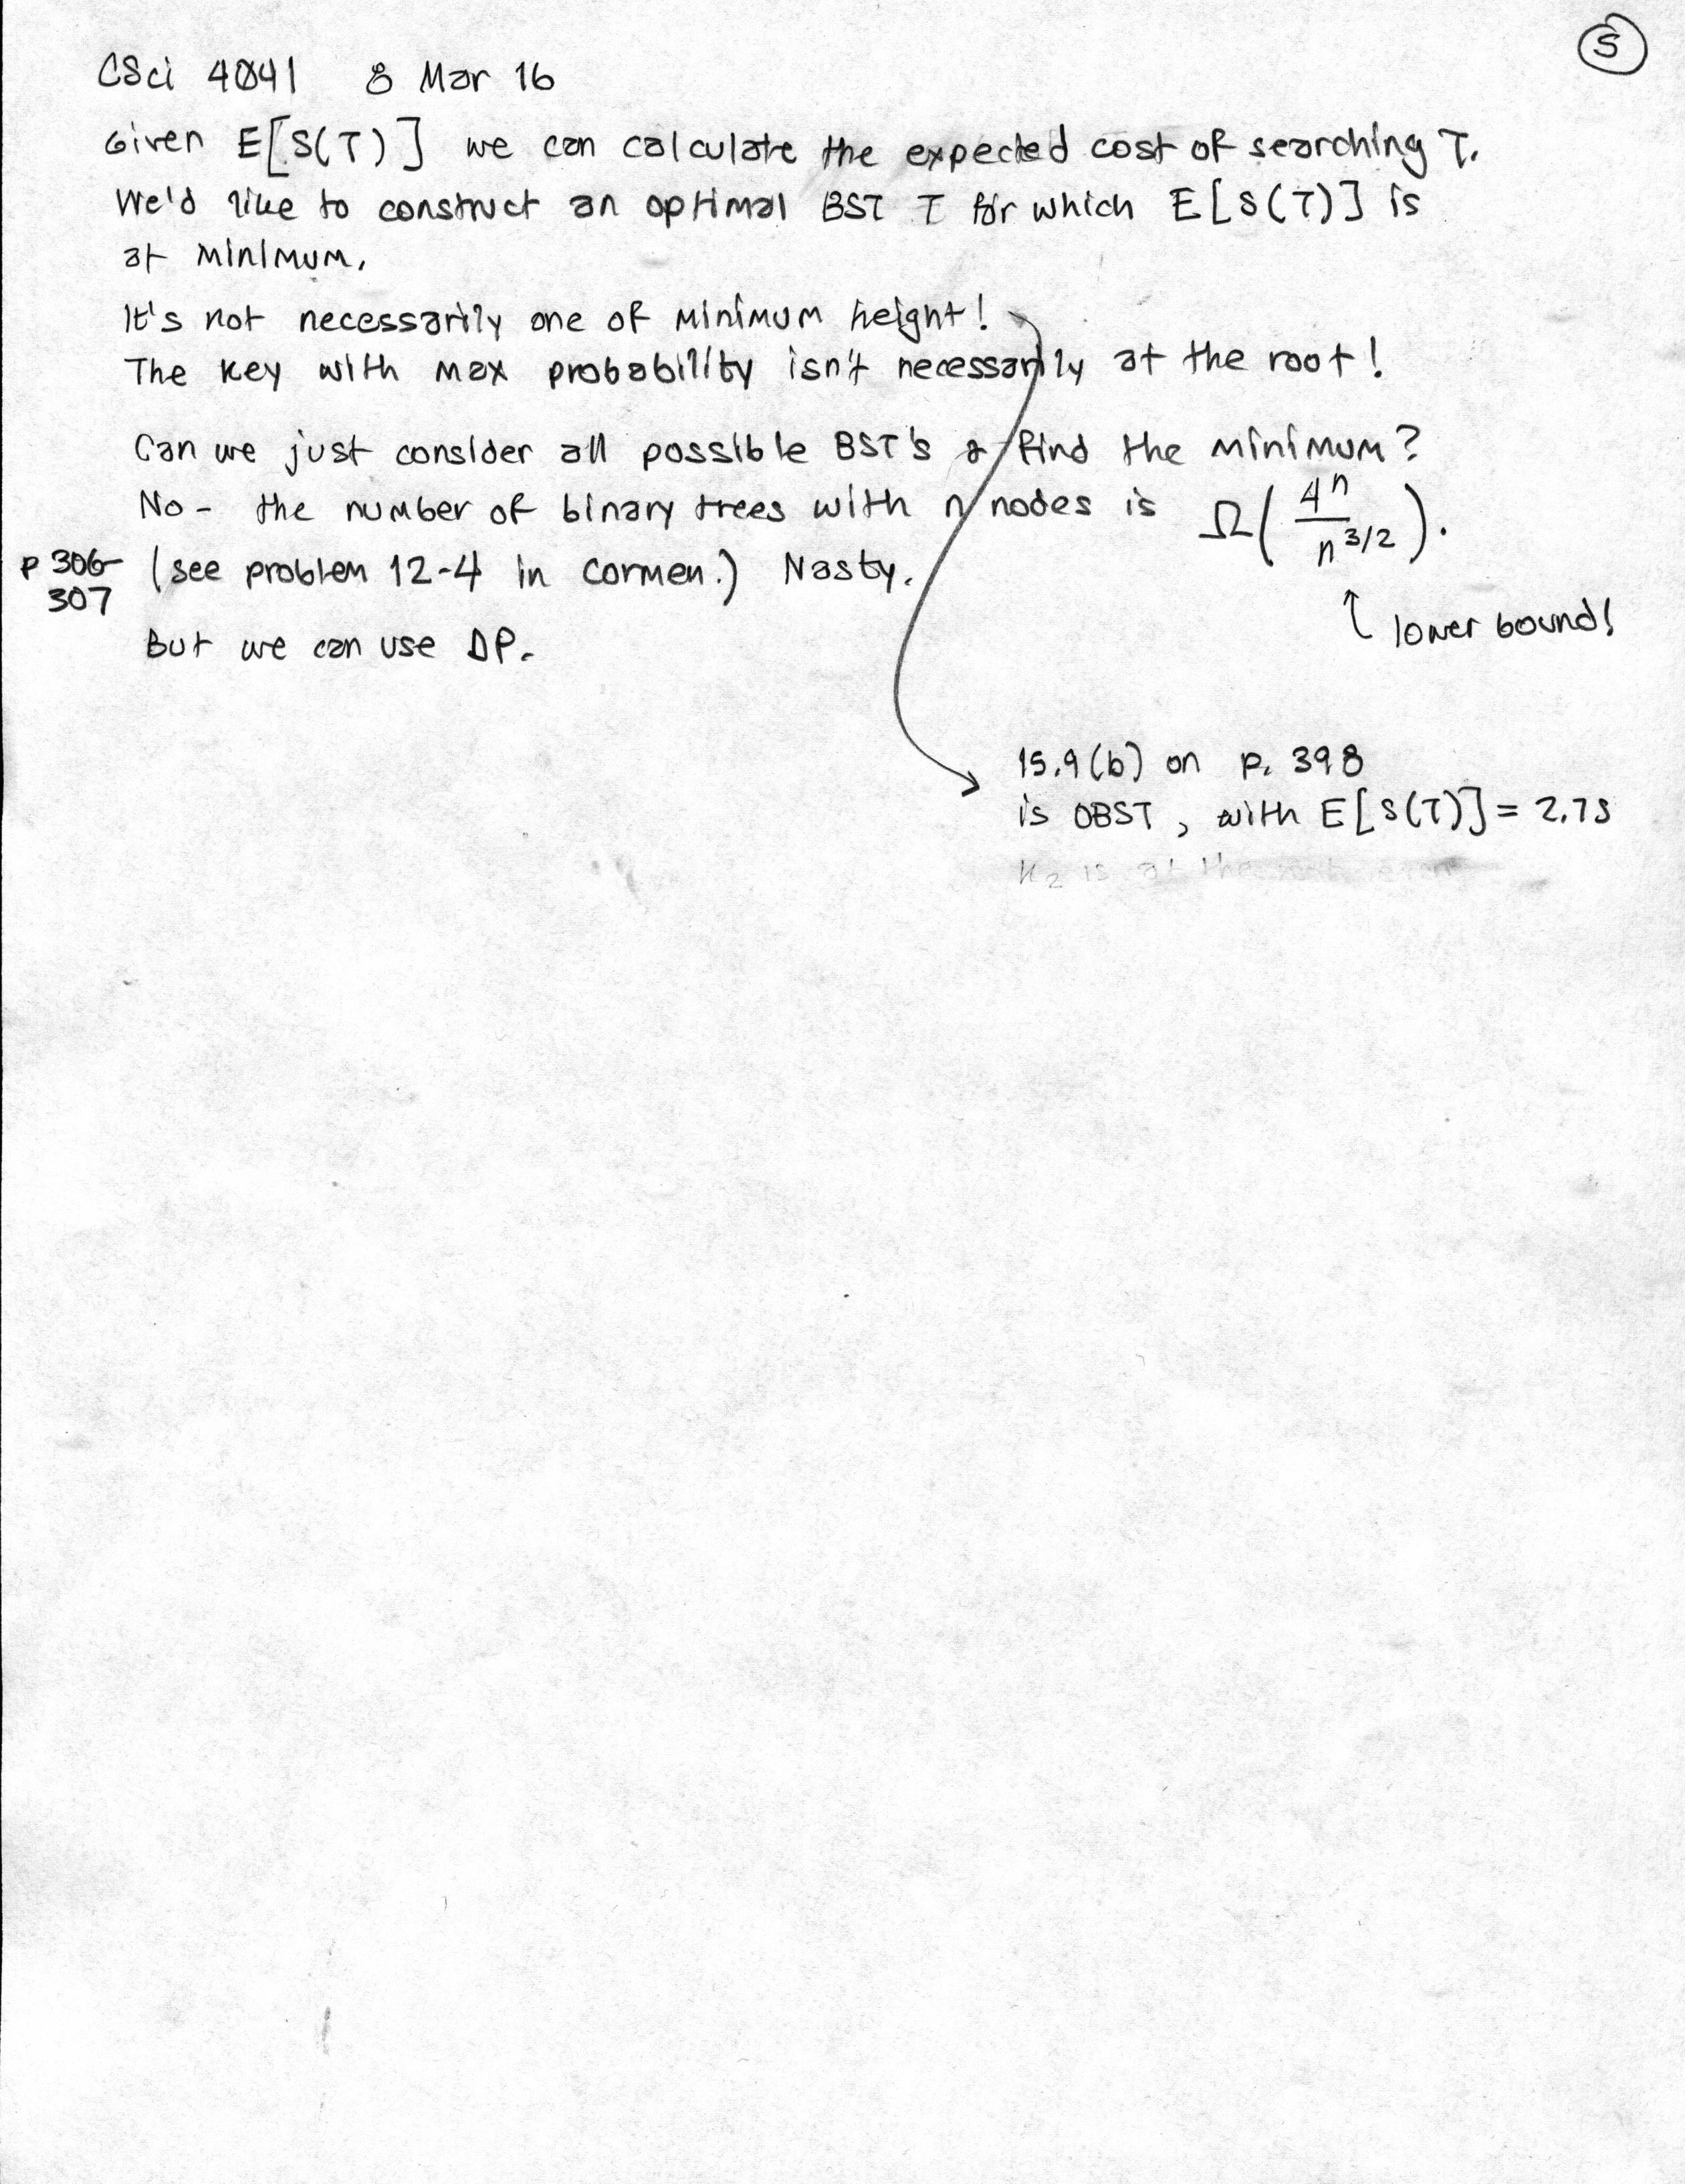 5
CSci 4041 8 Mar 16
Given E[S(T)] we can calculate the expected cost of searching T.
We'd like to construct an optimal BST T for which E[S(T)] is
at minimum.
It's not necessarily one of minimum height!
The key with max probability isn't necessarily at the root!
Can we just consider all possible BST's & find the minimum?
No - the number of binary trees with n nodes is Ω(4^n / n^{3/2}).
p 306-
307
(see problem 12-4 in Cormen.) Nasty.
↑ lower bound!
But we can use DP.
15.9(b) on p. 398
is OBST, with E[S(T)] = 2.75
K₂ is at the root